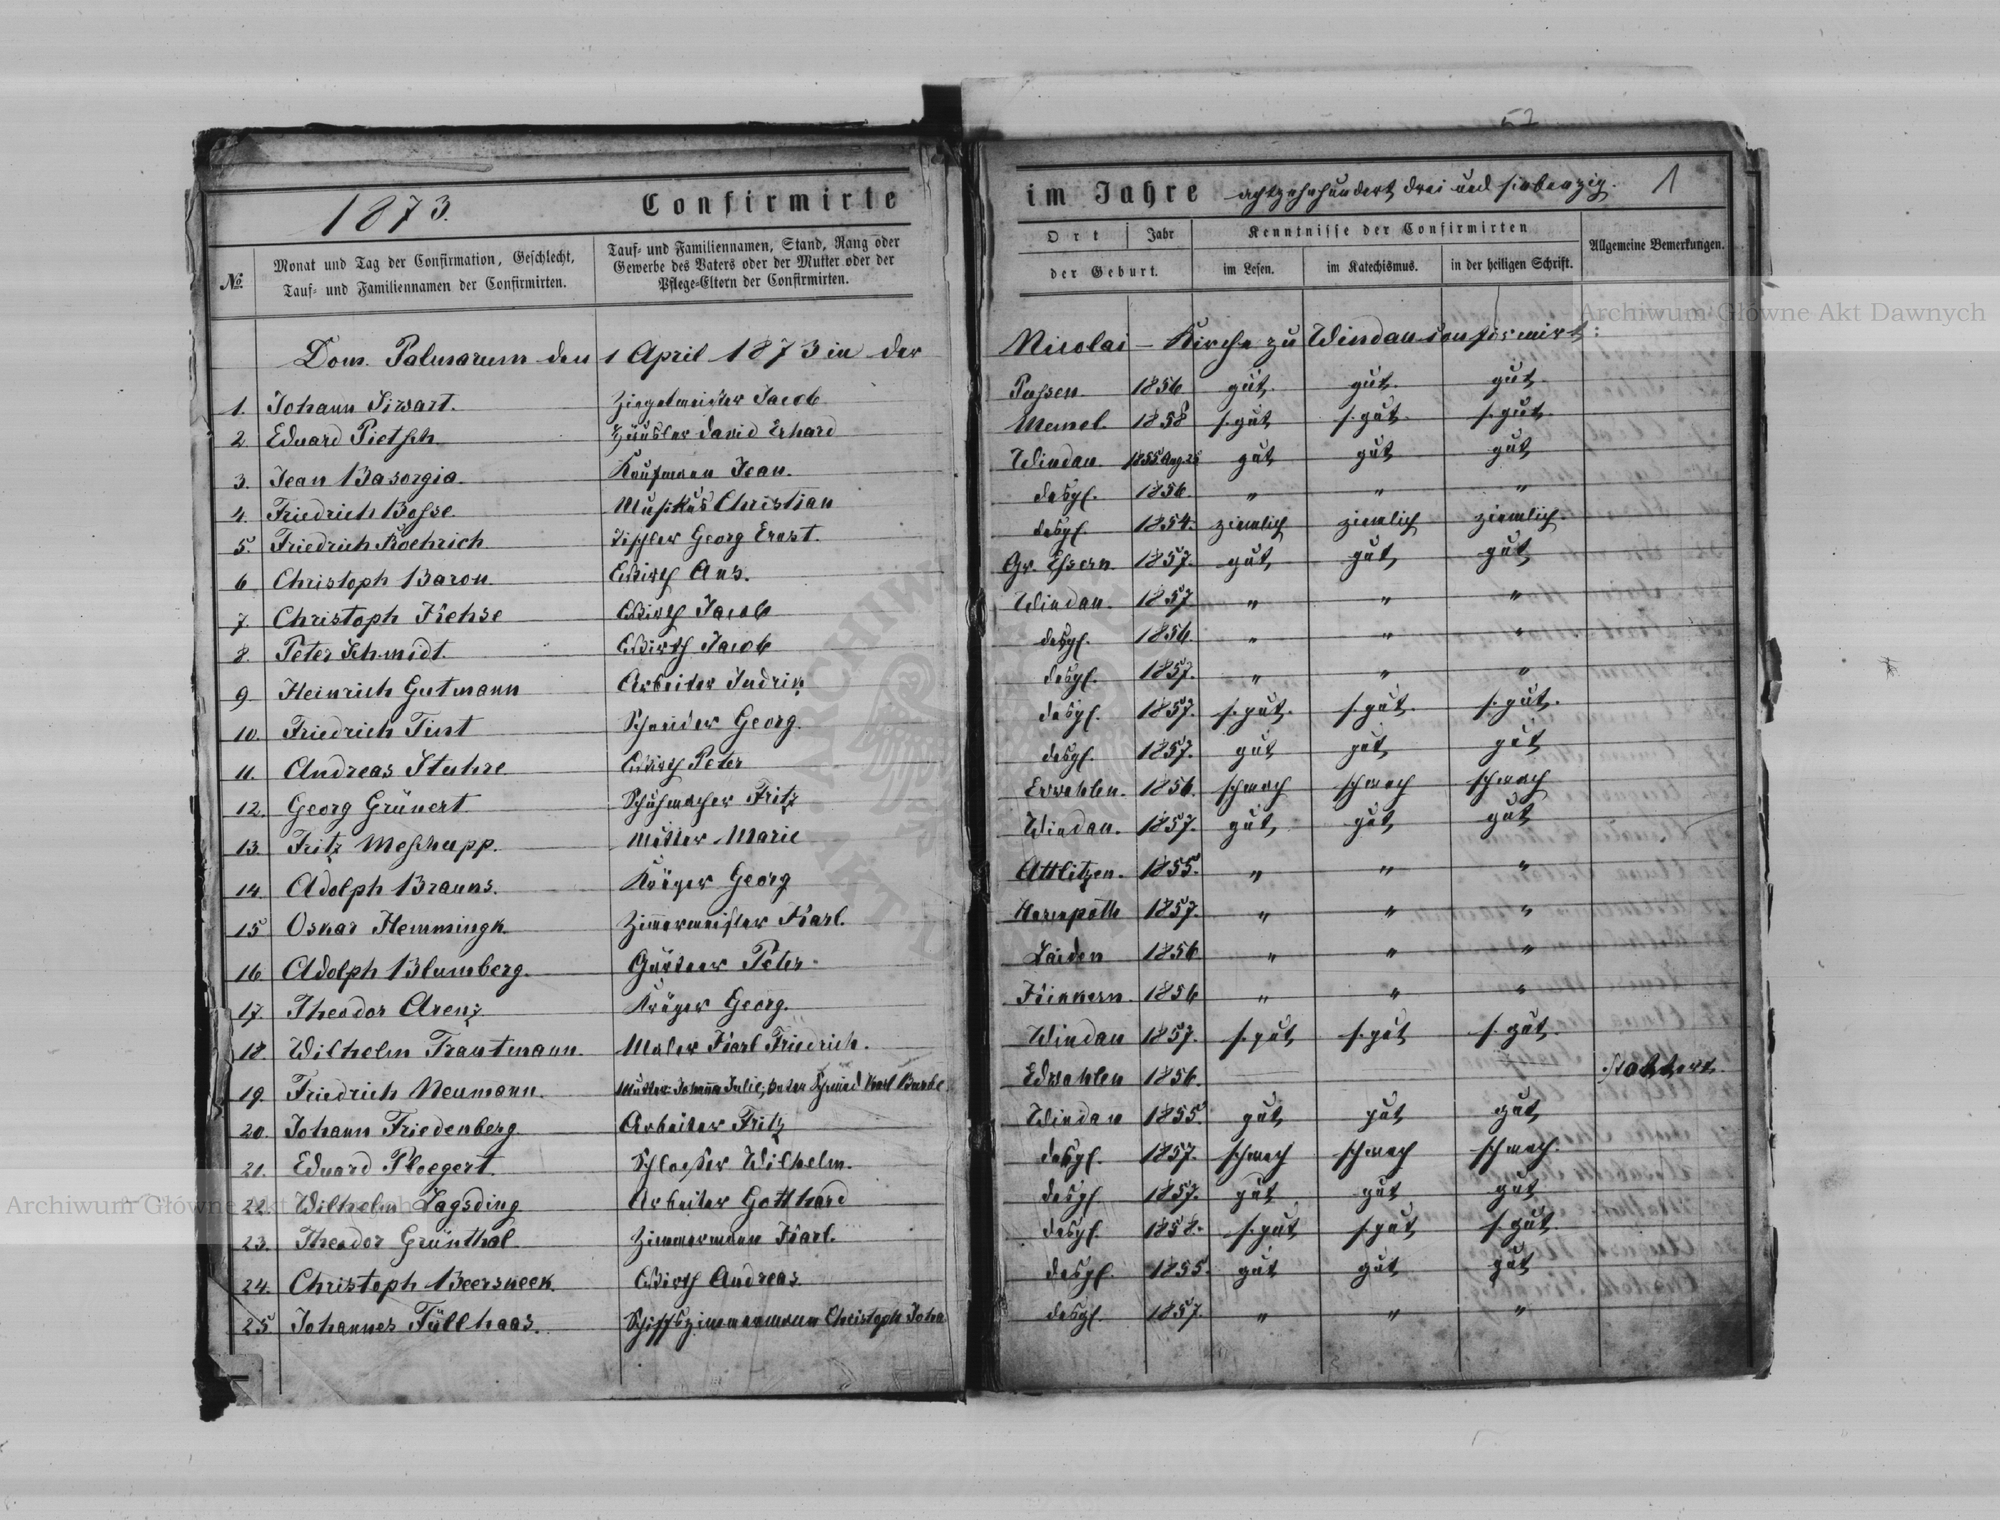 52
1873. Confirmirte im Jahre achtzehnhundert drei und siebenzig. 1
№ Monat und Tag der Confirmation, Geschlecht, Tauf- und Familiennamen der Confirmirten. Tauf- und Familiennamen, Stand, Rang oder Gewerbe des Vaters oder der Mutter oder der Pflege-Eltern der Confirmirten. Ort Jahr der Geburt. Kenntnisse der Confirmirten im Lesen. im Katechismus. in der heiligen Schrift. Allgemeine Bemerkungen.
Dom. Palmarum den 1 April 1873 in der Nicolai-Kirche zu Windau confirmirt:
1. Johann Siwart. Ziegelmeister Jacob Passen. 1856 gut. gut. gut.
2. Eduard Pietsch. Häusler David Erhard Memel. 1858 s. gut s. gut. s. gut.
3. Jean Basorgia. Kaufmann Jean. Windau. 1855 Aug. 25 gut gut gut
4. Friedrich Bosse. Musikus Christian desgl. 1856. " " "
5. Friedrich Roehrich Tischler Georg Ernst. desgl. 1854. ziemlich ziemlich ziemlich.
6. Christoph Baron. Wirth Ans. Gr. Essern. 1857. gut gut gut
7. Christoph Kehse Wirth Jacob Windau. 1857 " " "
8. Peter Schmidt. Wirth Jacob desgl. 1856. " " "
9. Heinrich Gutmann Arbeiter Indrik desgl. 1857. " " "
10. Friedrich Tust Schneider Georg. desgl. 1857. s. gut. s. gut. s. gut.
11. Andreas Stuhre Wirth Peter desgl. 1857. gut gut gut
12. Georg Grünert Schuhmacher Fritz Erwahlen. 1856. schwach schwach schwach
13. Fritz Meschupp. Mutter Marie Windau. 1857. gut gut gut
14. Adolph Brauns. Krüger Georg Attlitzen. 1855. " " "
15 Oskar Hemmingk. Zimmermeister Karl. Hasenpoth 1857. " " "
16. Adolph Blumberg. Gärtner Peter. Laiden 1856 " " "
17. Theodor Arenz. Krüger Georg. Kinkern. 1856 " " "
18. Wilhelm Trautmann. Maler Karl Friedrich. Windau 1857. s. gut s. gut s. gut.
19. Friedrich Neumann. Mutter Johanna Julie, Vater Schmied Karl Edwahlen 1856.
20. Johann Friedenberg. Arbeiter Fritz Windau 1855. gut gut gut
21. Eduard Ploegert. Schlosser Wilhelm. desgl. 1857. schwach schwach schwach.
22. Wilhelm Lagsding. Arbeiter Gotthard desgl 1857. gut gut gut
23. Theodor Grünthal. Zimmermann Karl. desgl. 1858. s. gut s. gut s. gut.
24. Christoph Beersneek. Wirth Andreas. desgl. 1855. gut gut gut
25 Johannes Füllhaas. Schiffszimmermann Christoph Joha desgl. 1857. " " "
Archiwum Główne Akt Dawnych
Archiwum Główne Akt Dawnych